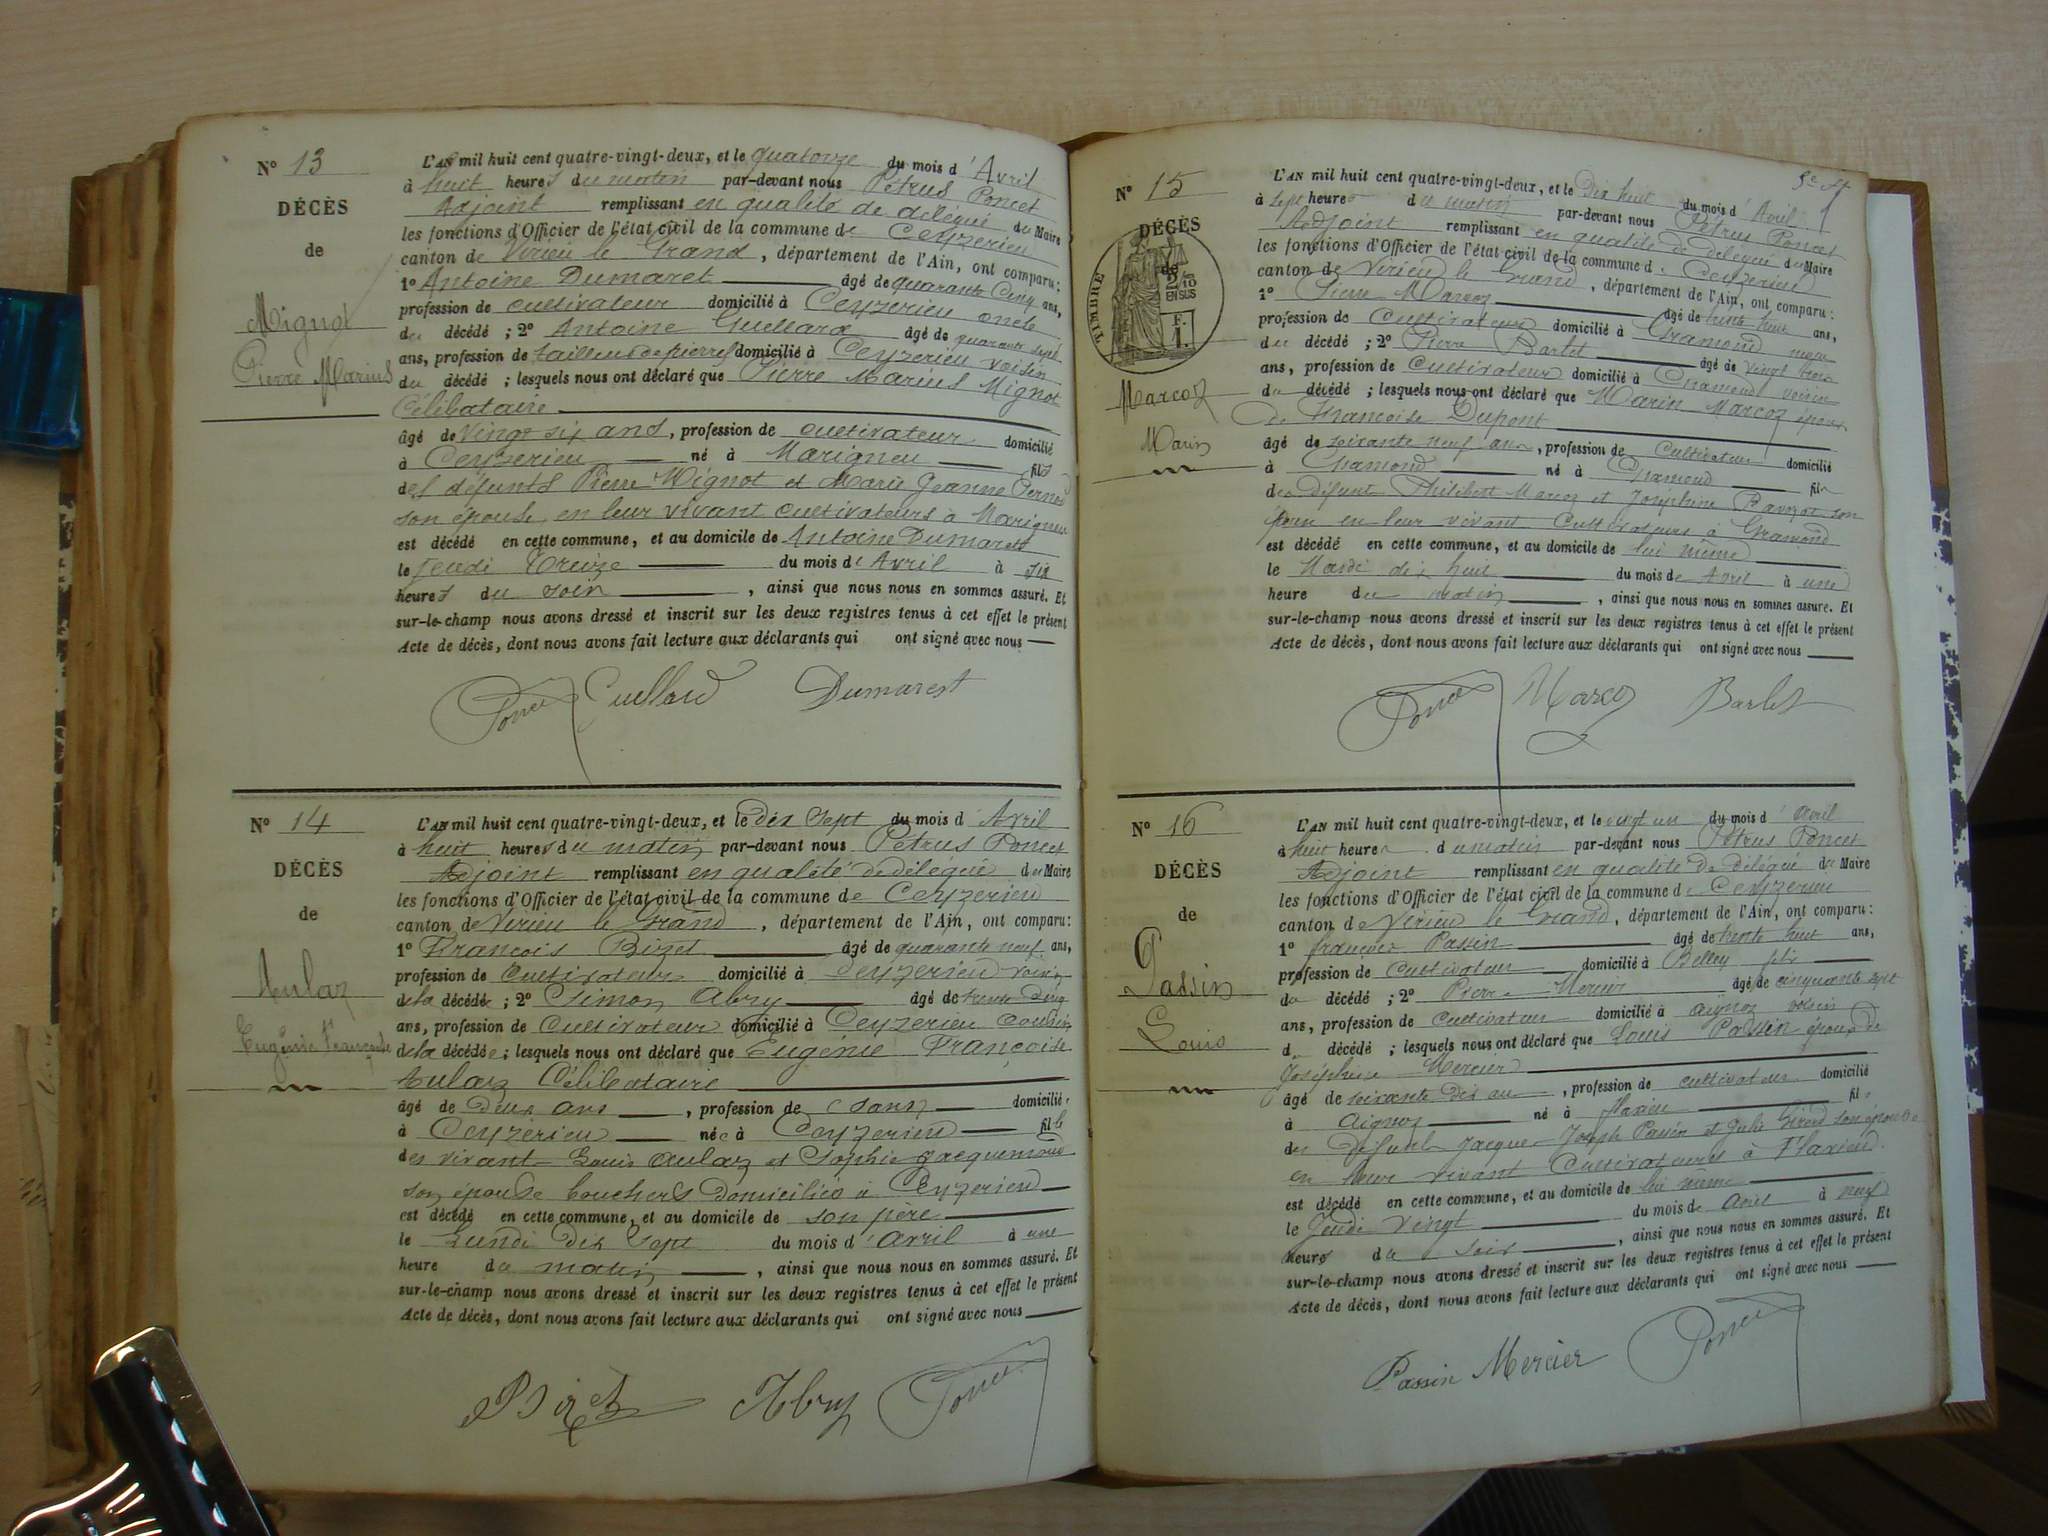 N° 13
DÉCÈS
de
Mignot
Pierre Marius
L'AN mil huit cent quatre-vingt-deux, et le quatorze du mois d'Avril
à huit heures du matin par-devant nous Pétrus Poncet
Adjoint remplissant en qualité de délégué du Maire
les fonctions d'Officier de l'état civil de la commune de Ceyzerieu
canton de Virieu le Grand, département de l'Ain, ont comparu:
1° Antoine Dumaret âgé de quarante Cinq ans,
profession de cultivateur domicilié à Ceyzerieu oncle
du décédé ; 2° Antoine Guellard âgé de quarante sept
ans, profession de tailleur de pierres domicilié à Ceyzerieu voisin
du décédé ; lesquels nous ont déclaré que Pierre Marius Mignot
Célibataire
âgé de Vingt six ans, profession de cultivateur domicilié
à Ceyzerieu né à Marigneu fils
des défunts Pierre Mignot et Marie Jeanne
son épouse, en leur vivant cultivateurs à Marigneu
est décédé en cette commune, et au domicile de Antoine Dumarest
le Jeudi Treize du mois d'Avril à six
heures du soir, ainsi que nous nous en sommes assuré. Et
sur-le-champ nous avons dressé et inscrit sur les deux registres tenus à cet effet le présent
Acte de décès, dont nous avons fait lecture aux déclarants qui ont signé avec nous
Poncet Guellard Dumarest
N° 14
DÉCÈS
de
Aulaz
Eugénie Françoise
L'AN mil huit cent quatre-vingt-deux, et le dix Sept du mois d'Avril
à huit heures du matin par-devant nous Pétrus Poncet
Adjoint remplissant en qualité de délégué du Maire
les fonctions d'Officier de l'état civil de la commune de Ceyzerieu
canton de Virieu le Grand, département de l'Ain, ont comparu:
1° François Bizet âgé de quarante neuf ans,
profession de Cultivateur domicilié à Ceyzerieu voisin
de la décédée ; 2° Simon Abry âgé de trente cinq
ans, profession de Cultivateur domicilié à Ceyzerieu cousin
de la décédée ; lesquels nous ont déclaré que Eugénie Françoise
Aulaz Célibataire
âgé de Deux ans, profession de sans domicilié
à Ceyzerieu née à Ceyzerieu fille
des vivant Louis Aulaz et Sophie Jacquemond
son épouse bouchers domiciliés à Ceyzerieu
est décédé en cette commune, et au domicile de son père
le Lundi Dix Sept du mois d'avril à une
heure du matin, ainsi que nous nous en sommes assuré. Et
sur-le-champ nous avons dressé et inscrit sur les deux registres tenus à cet effet le présent
Acte de décès, dont nous avons fait lecture aux déclarants qui ont signé avec nous
Bizet Abry Poncet
N° 15
DÉCÈS
de
TIMBRE
2/10
EN SUS
F.
1.
Marcoz
Marin
L'AN mil huit cent quatre-vingt-deux, et le Dix huit du mois d'Avril
à Sept heures du matin par-devant nous Pétrus Poncet
Adjoint remplissant en qualité de délégué du Maire
les fonctions d'Officier de l'état civil de la commune de Ceyzerieu
canton de Virieu le Grand, département de l'Ain, ont comparu:
1° Pierre Marcoz âgé de trente huit ans,
profession de Cultivateur domicilié à Chamond neveu
du décédé ; 2° Pierre Barlet âgé de vingt trois
ans, profession de Cultivateur domicilié à Chamond voisin
du décédé ; lesquels nous ont déclaré que Marin Marcoz époux
de Françoise Dupont
âgé de soixante neuf ans, profession de Cultivateur domicilié
à Chamond né à Chamond fils
des défunts Philibert Marcoz et Joséphine son
épouse en leur vivant Cultivateurs à Chamond
est décédé en cette commune, et au domicile de lui même
le Mardi dix huit du mois de Avril à une
heure du matin, ainsi que nous nous en sommes assuré. Et
sur-le-champ nous avons dressé et inscrit sur les deux registres tenus à cet effet le présent
Acte de décès, dont nous avons fait lecture aux déclarants qui ont signé avec nous
Poncet Marcoz Barlet
N° 16
DÉCÈS
de
Passin
Louis
L'AN mil huit cent quatre-vingt-deux, et le vingt un du mois d'avril
à huit heures du matin par-devant nous Pétrus Poncet
Adjoint remplissant en qualité de délégué du Maire
les fonctions d'Officier de l'état civil de la commune de Ceyzerieu
canton de Virieu le Grand, département de l'Ain, ont comparu:
1° François Passin âgé de trente huit ans,
profession de cultivateur domicilié à Belley fils
du décédé ; 2° Pierre Mercier âgé de cinquante sept
ans, profession de cultivateur domicilié à aignoz voisin
du décédé ; lesquels nous ont déclaré que Louis Passin époux de
Joséphine Mercier
âgé de soixante dix ans, profession de cultivateur domicilié
à Aignoz né à flaxieu fils
des défunts Jacques Joseph Passin et Julie Girod son épouse
en leur vivant Cultivateurs à Flaxieu.
est décédé en cette commune, et au domicile de lui même
le Jeudi vingt du mois de avril à neuf
heures du soir, ainsi que nous nous en sommes assuré. Et
sur-le-champ nous avons dressé et inscrit sur les deux registres tenus à cet effet le présent
Acte de décès, dont nous avons fait lecture aux déclarants qui ont signé avec nous
Passin Mercier Poncet